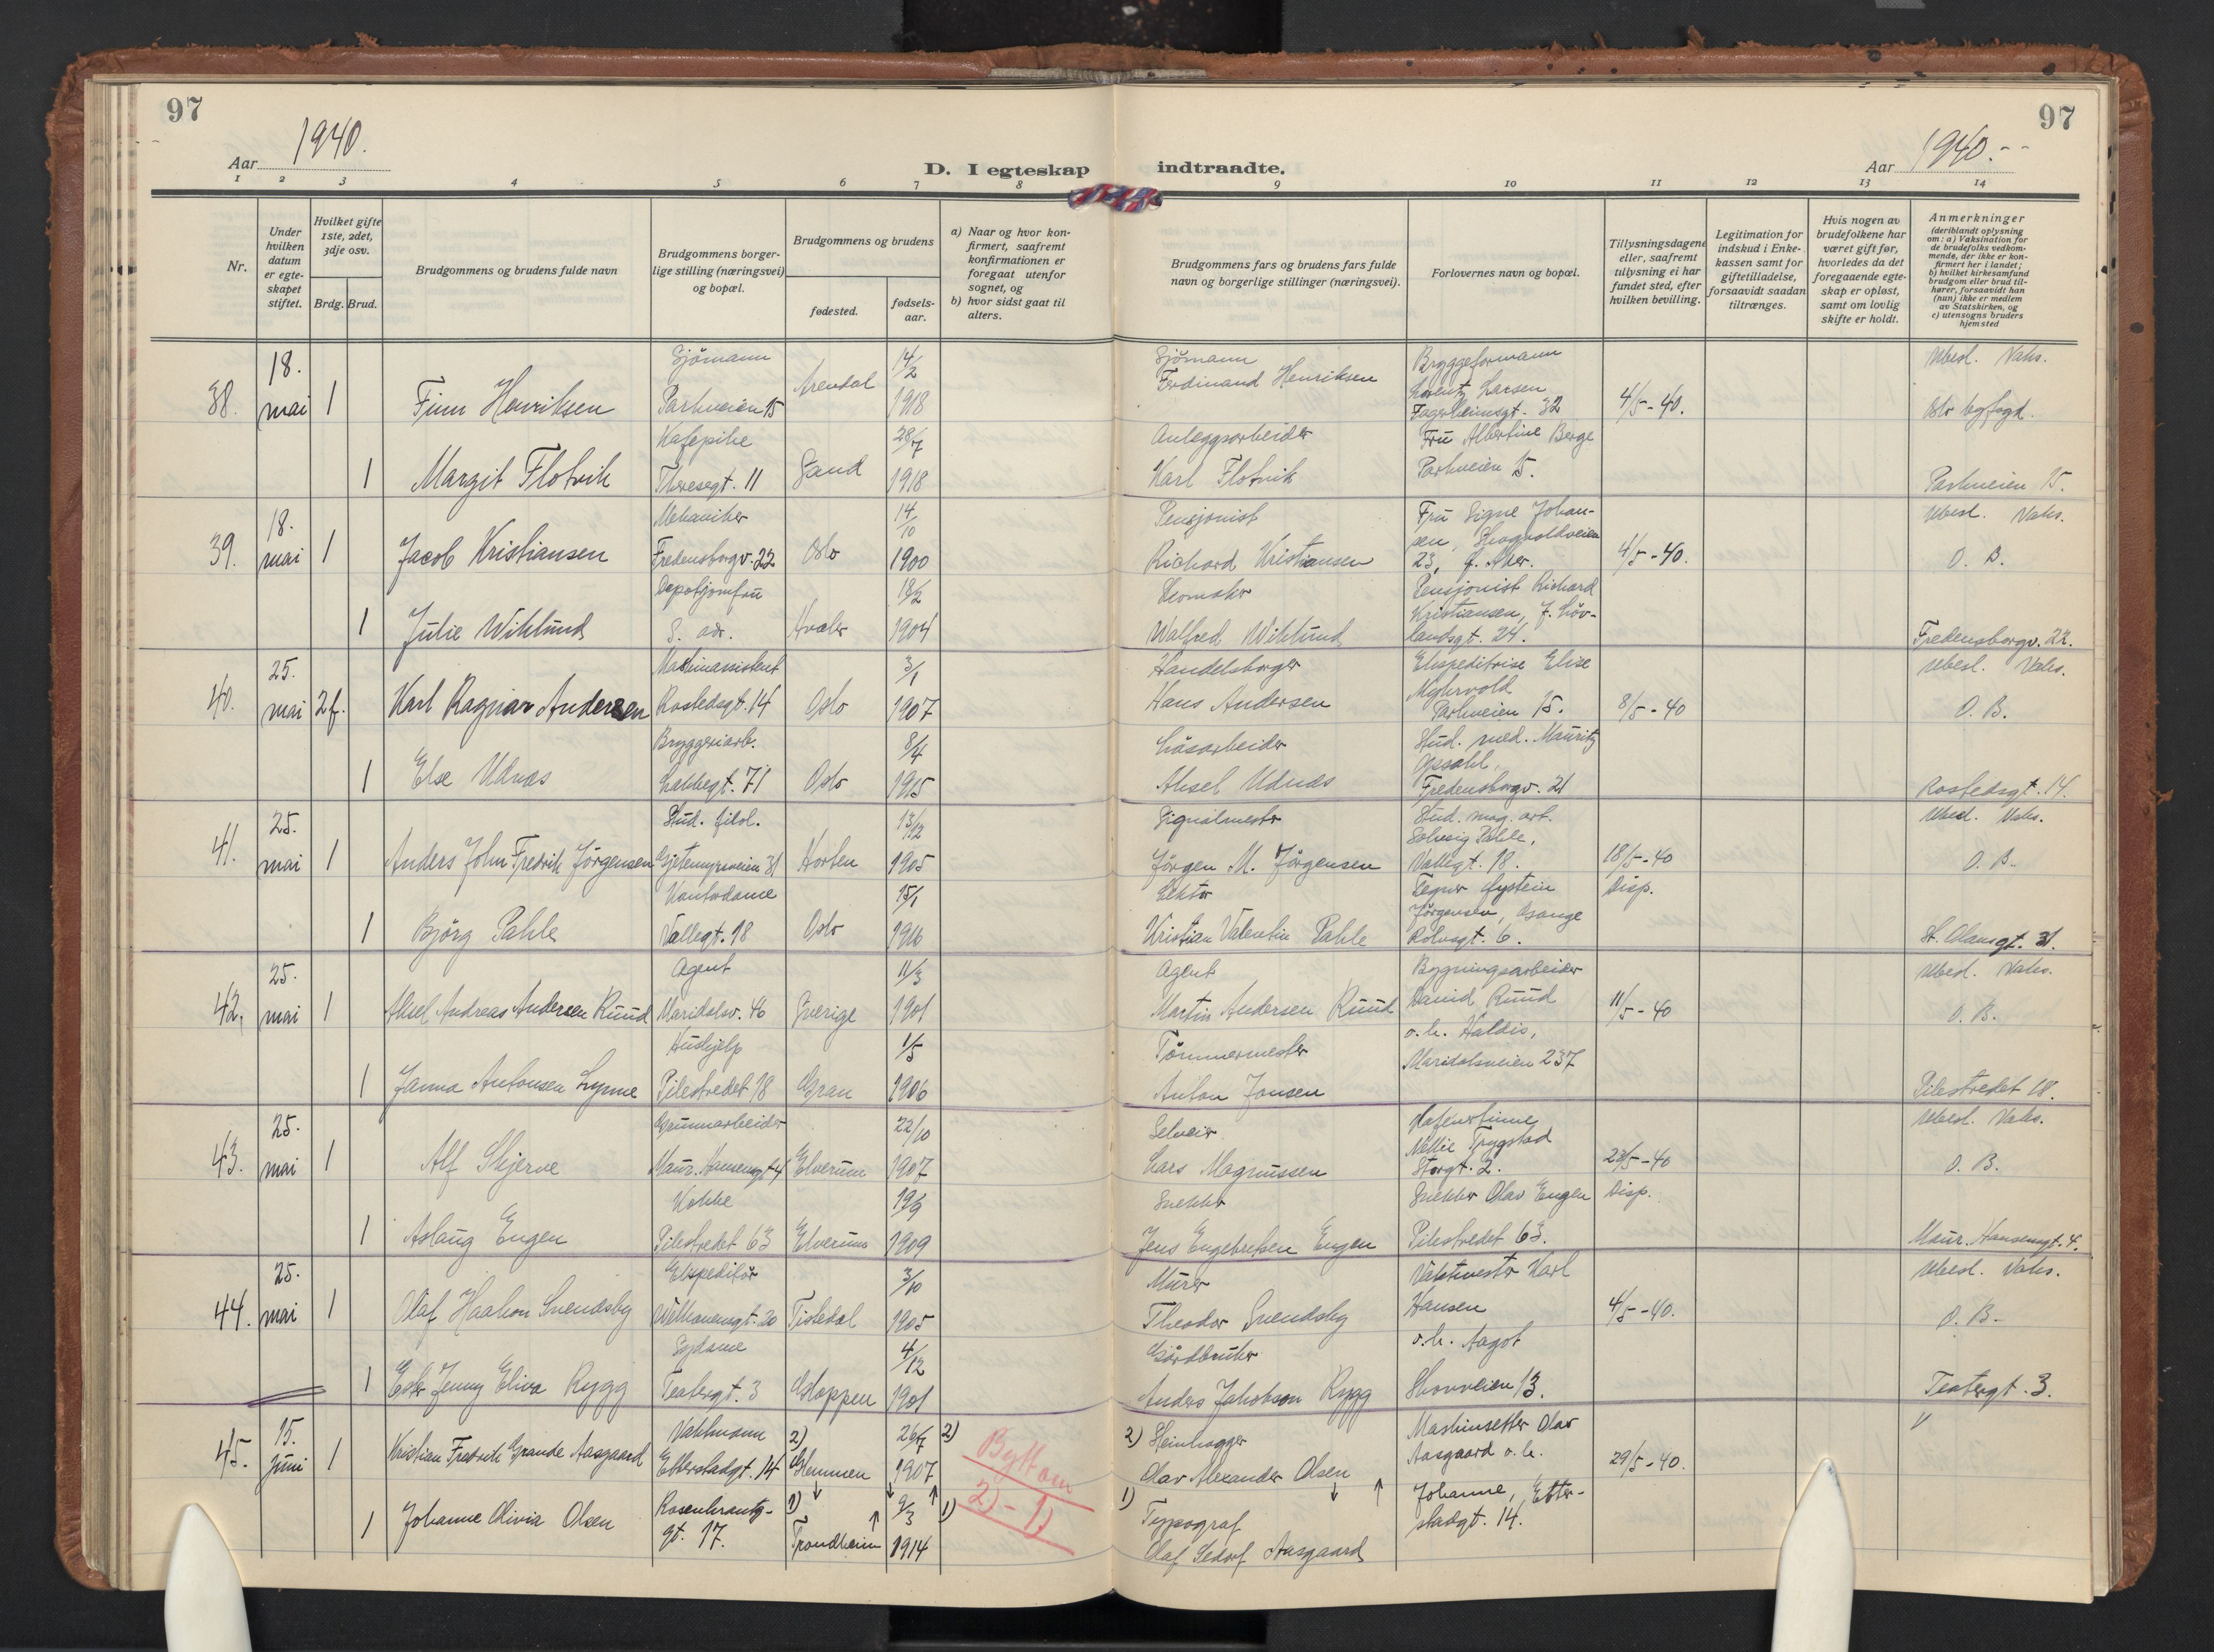 97
97
Aar 1940.
D. I egteskap indtraadte.
Aar 1940.--
1 2 3 4 5 6 7 8 9 10 11 12 13 14
Nr.
Under hvilken datum er egteskapet stiftet.
Hvilket gifte 1ste, 2det, 3dje osv.
Brdg. Brud.
Brudgommens og brudens fulde navn
Brudgommens borgerlige stilling (næringsvei) og bopæl.
Brudgommens og brudens
fødested.
fødselsaar.
a) Naar og hvor konfirmert, saafremt konfirmationen er foregaat utenfor sognet, og
b) hvor sidst gaat til alters.
Brudgommens fars og brudens fars fulde navn og borgerlige stillinger (næringsvei).
Forlovernes navn og bopæl.
Tillysningsdagene eller, saafremt tillysning ei har fundet sted, efter hvilken bevilling.
Legitimation for indskud i Enkekassen samt for giftetilladelse, forsaavidt saadan tiltrænges.
Hvis nogen av brudefolkene har været gift før, hvorledes da det foregaaende egteskap er opløst, samt om lovlig skifte er holdt.
Anmerkninger (deriblandt oplysning om: a) Vaksination for de brudefolks vedkommende, der ikke er konfirmert her i landet; b) hvilket kirkesamfund brudgom eller brud tilhører, forsaavidt han (hun) ikke er medlem av Statskirken, og c) utensogns bruders hjemsted
38. 18. mai 1 Finn Henriksen Sjömann Parkveien 15 Arendal 14/2 1918 Sjömann Ferdinand Henriksen Bryggeformann Lorentz Larsen Fagerheimsgt. 32 4/5-40. Ubesl. Vaks. Oslo byfogd.
1 Margit Flotvik Kafepike Theresegt. 11 Sand 28/7 1918 Anleggsarbeider Karl Flotvik Fru Albertine Berge Parkveien 15. Parkveien 15.
39. 18. mai 1 Jacob Kristiansen Mekaniker Fredensborgv. 22 Oslo 14/10 1900 Pensjonist Richard Kristiansen Fru Signe Johansen, 23, 4/5-40. Ubesl. Vaks. O. B.
1 Julie Wiklund Depotjomfru S. adr. Hvaler 18/2 1904 Skomaker Walfred Wiklund Pensjonist Richard Kristiansen, J. Lövlandsgt. 24. Fredensborgv. 22.
40. 25. mai 2 f. Karl Ragnar Andersen Maskinassistent Rostedsgt. 14 Oslo 3/1 1907 Handelsborger Hans Andersen Ekspeditrise Elise Myhrvold Parkveien 15. 8/5-40 Ubesl. Vaks. O. B.
1 Else Udnæs Bryggeriarb. Lakkegt. 71 Oslo 8/4 1915 Låsarbeider Aksel Udnæs Stud. med. Mauritz Opsahl, Fredensborgv. 21 Rostedsgt. 14.
41. 25. mai 1 Anders John Fredrik Jörgensen Stud. filol. Gjetemyrsveien 31 Horten 13/12 1905 Signalmester Jörgen M. Jörgensen Stud. mag. art. Solveig Pahle, Vallegt. 18. 18/5-40 Ubesl. Vaks. O. B.
1 Björg Pahle Kontordame Vallegt. 18 Oslo 15/1 1916 Lektor Kristian Valentin Pahle Tegner Øystein Jörgensen, Rolvsgt. 6. Disp. St. Olavsgt. 31.
42. 25. mai 1 Aksel Andreas Andersen Ruud Agent Maridalsv. 46 Sverige 11/3 1901 Agent Martin Andersen Ruud Bygningsarbeider David Ruud 11/5-40 Ubesl. Vaks. O. B.
1 Janna Antonsen Lynne Hushjelp Pilestredet 18 Gran 1/5 1906 Tömmermester Anton Jonsen o. h. Haldis, Maridalsveien 237 Pilestredet 18.
43. 25. mai 1 Alf Skjerve Grunnarbeider Maur. Hansensgt. 4 Elverum 22/10 1907 Selveier Lars Magnussen Nellie Trygstad Storgt. 2. 23/5-40 Ubesl. Vaks. O. B.
1 Aslaug Engen Kokke Pilestredet 63 Elverum 19/9 1909 Snekker Jens Engebretsen Engen Snekker Olav Engen Pilestredet 63. Disp. Maur. Hansensgt. 4.
44. 25. mai 1 Olaf Haakon Svendsby Ekspeditör Tistedal 3/10 1905 Murer Theodor Svendsby Vaktmester Karl Hansen 4/5-40. Ubesl. Vaks. O. B.
1 Ester Jenny Elise Rygg Sydame Teatergt. 3 Gloppen 4/12 1901 Gårdbruker Anders Jakobson Rygg o. h. Aagot Skovveien 13. Teatergt. 3.
45. 15. juni 1 Kristian Fredrik Grande Aasgaard Vaktmann Etterstadgt. 14 2) Glemmen 26/7 1907 2) 2) Steinhogger Olav Alexander Olsen Maskinsetter Olav Aasgaard o. h. 29/5-40.
1 Johanne Olivia Olsen Rosenkrantzgt. 17. 1) Trondheim 9/3 1914 1) 1) Typograf Olaf Aasgaard Johanne, Etterstadgt. 14.
Bytt om
2) - 1)